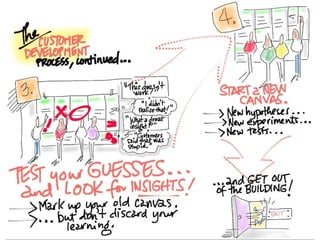 The
CUSTOMER
DEVELOPMENT
PROCESS, continued...
3.
"This doesn't
work!"
"I didn't
realize that!"
"What a great
insight for..."
"Customers
said that was
stupid."
TEST your GUESSES...
and LOOK for INSIGHTS!
> Mark up your old canvas.
> ... but don't discard your
learning.
4.
START A NEW
CANVAS.
> New hypotheses...
> New experiments...
> New tests...
...and GET OUT
of the BUILDING!
EXIT